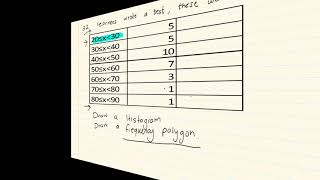 32 learners wrote a test, these
20≤x<30 5
30≤x<40 5
40≤x<50 10
50≤x<60 7
60≤x<70 3
70≤x<80 1
80≤x<90 1
Draw a Histogram
Draw a frequency polygon